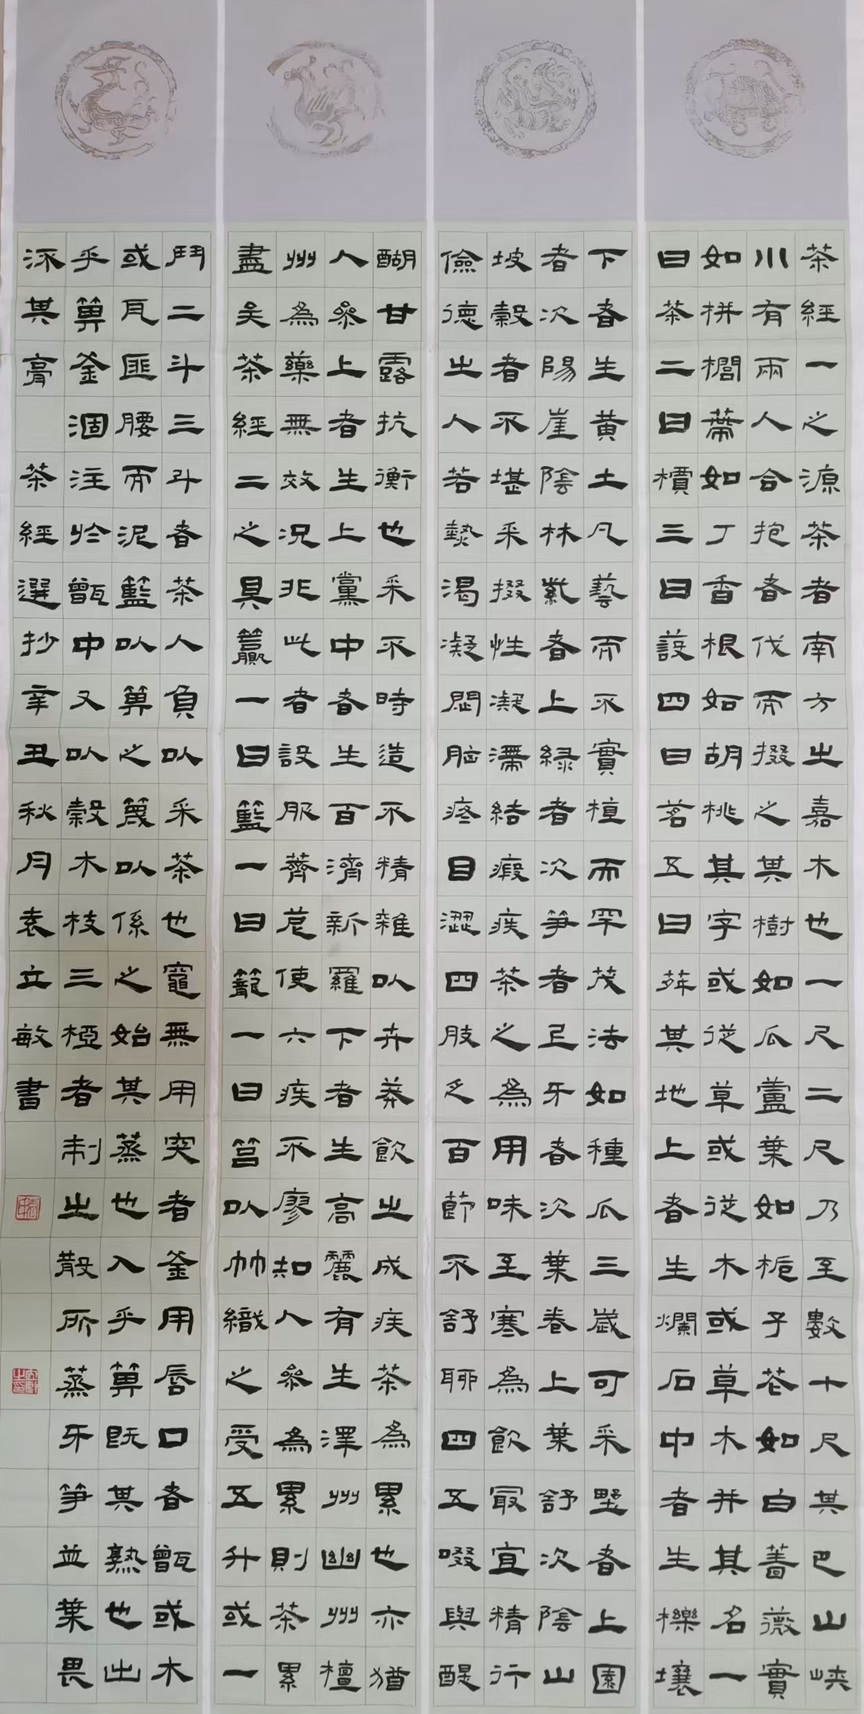 茶經一之源茶者南方之嘉木也一尺二尺乃至數十尺其巴山峽
川有兩人合抱者伐而掇之其樹如瓜蘆葉如梔子花如白薔薇實
如栟櫚蒂如丁香根如胡桃其字或從草或從木或草木并其名一
曰茶二曰檟三曰蔎四曰茗五曰荈其地上者生爛石中者生櫟壤
下者生黃土凡藝而不實植而罕茂法如種瓜三歲可采野者上園
者次陽崖陰林紫者上綠者次笋者上牙者次葉卷上葉舒次陰山
坡穀者不堪采掇性凝滯結瘕疾茶之為用味至寒為飲最宜精行
儉德之人若熱渴凝悶腦疼目澀四肢乏百節不舒聊四五啜與醍
醐甘露抗衡也采不時造不精雜以卉莽飲之成疾茶為累也亦猶
人參上者生上黨中者生百濟新羅下者生高麗有生澤州幽州檀
州為藥無效況非此者設服薺苨使六疾不廖知人參為累則茶累
盡矣茶經二之具籝一曰籃一曰籠一曰筥以竹織之受五升或一
鬥二斗三斗者茶人負以采茶也竈無用突者釜用脣口者甑或木
或瓦匪腰而泥籃以箄之篾以係之始其蒸也入乎箄既其熟也出
乎箄釜涸注於甑中又以穀木枝三椏者制之散所蒸牙笋並葉畏
流其膏 茶經選抄辛丑秋月袁立敏書